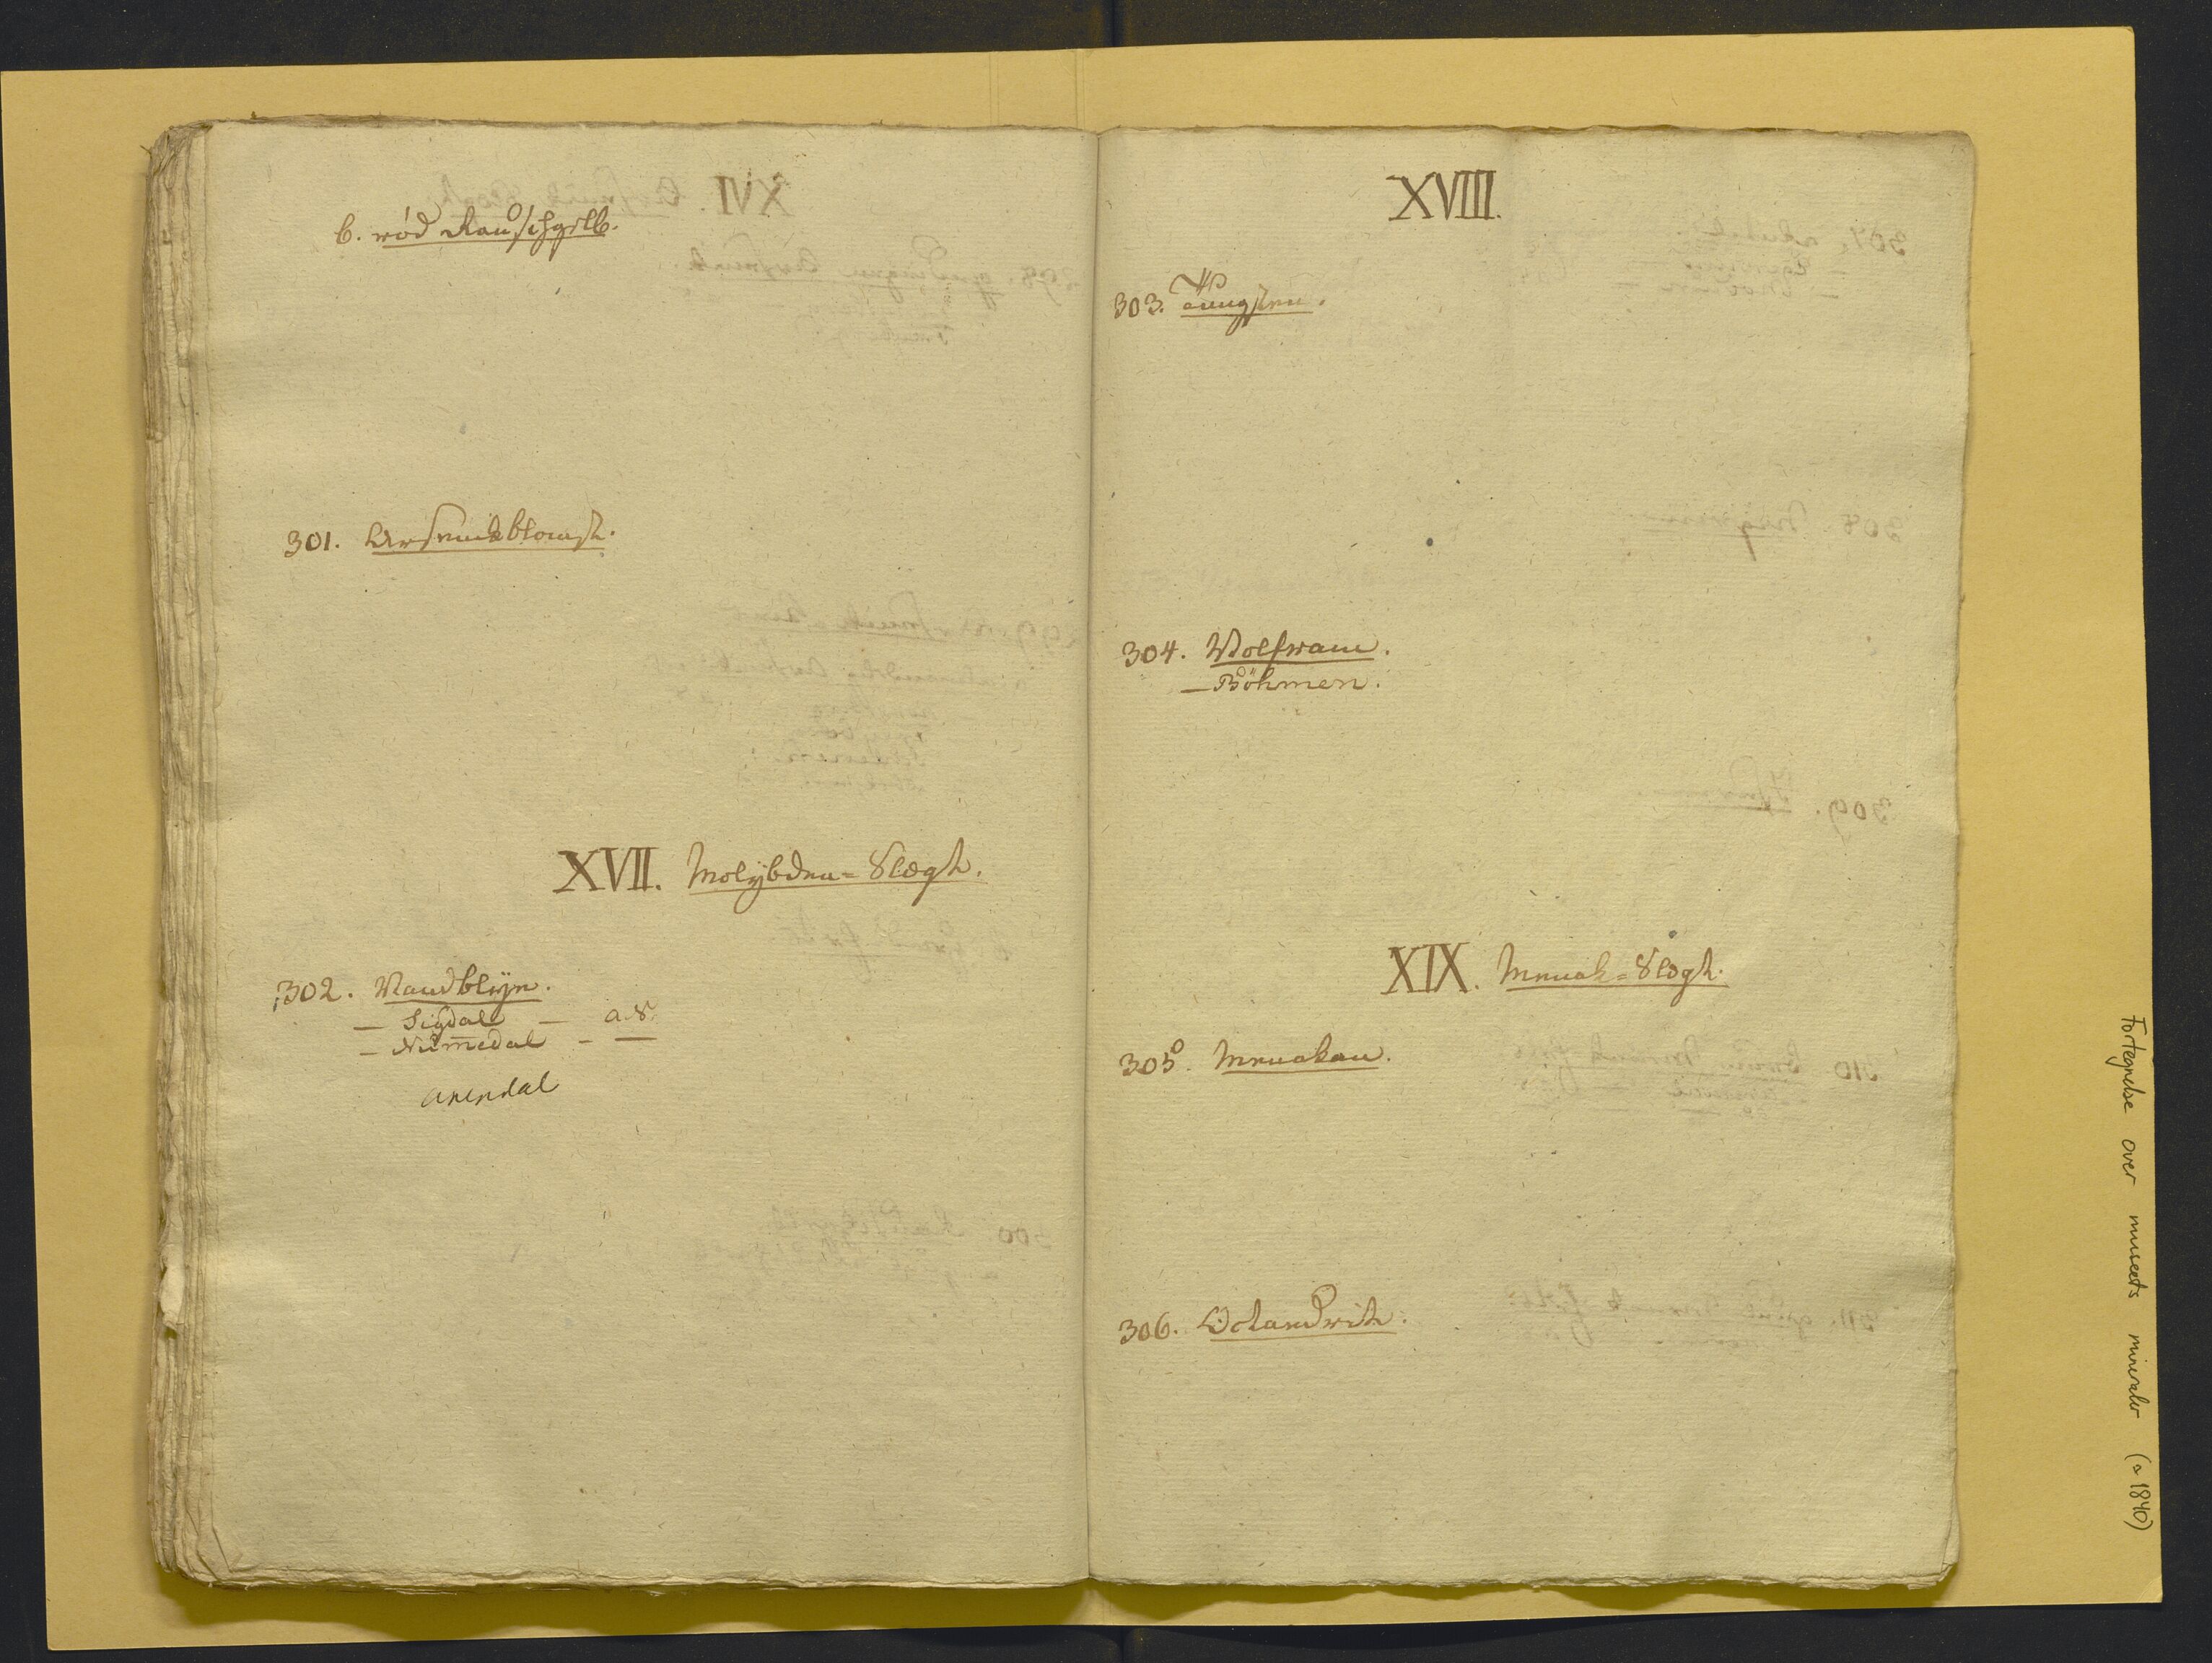 b. rød Rauschgelb.
301. Arsenikblomst.
XVII. Molybden=Slægt.
302. Vandblÿn.
— Sigdal — a.S.
— Nummedal - —
Arendal
XVIII.
303. Tungsten.
304. Wolfram.
— Böhmen.
XIX. Menak=Slægt.
305. Menakan.
306. Octaedrit.
Fortegnelse over museets mineraler (ca 1840)